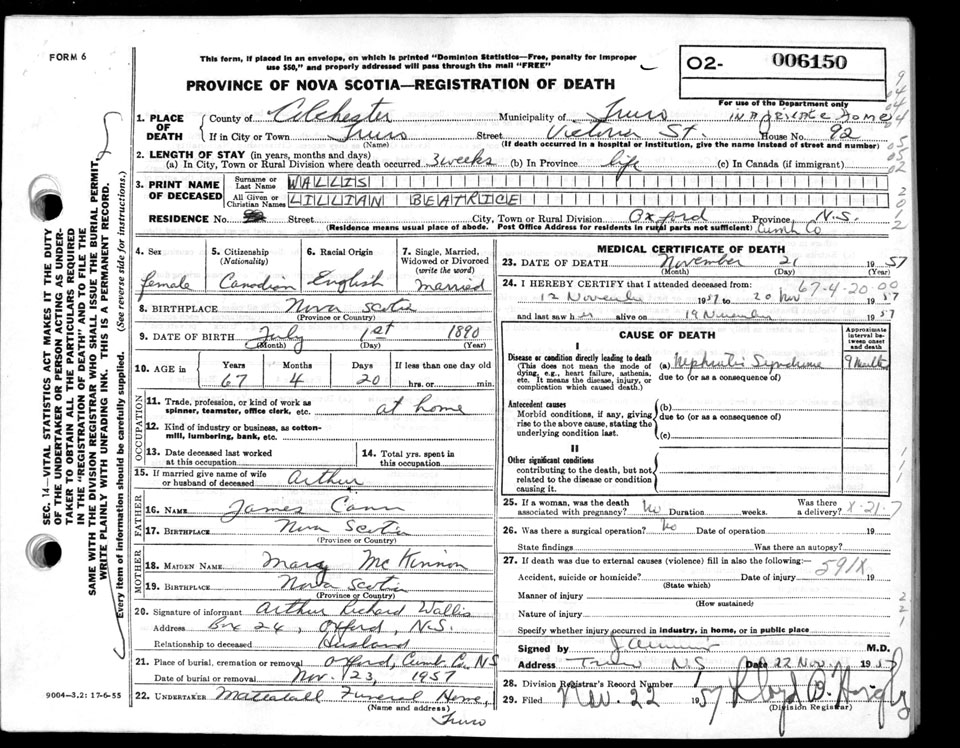 FORM 6
This form, if placed in an envelope, on which is printed "Dominion Statistics—Free, penalty for improper
use $50," and properly addressed will pass through the mail "FREE"
O2- 006150
For use of the Department only
PROVINCE OF NOVA SCOTIA—REGISTRATION OF DEATH
1. PLACE OF DEATH
County of Colchester Municipality of Truro
If in City or Town Truro Street Victoria St. House No. 92
(Name) (If death occurred in a hospital or institution, give the name instead of street and number)
2. LENGTH OF STAY (in years, months and days)
(a) In City, Town or Rural Division where death occurred 3 weeks (b) In Province life (c) In Canada (if immigrant)
3. PRINT NAME OF DECEASED
Surname or Last Name WALLIS
All Given or Christian Names LILLIAN BEATRICE
RESIDENCE No. Street City, Town or Rural Division Oxford Province N.S.
(Residence means usual place of abode. Post Office Address for residents in rural parts not sufficient) Cumb Co
4. Sex female
5. Citizenship (Nationality) Canadian
6. Racial Origin English
7. Single, Married, Widowed or Divorced (write the word) married
8. BIRTHPLACE Nova Scotia
(Province or Country)
9. DATE OF BIRTH July 1st 1890
(Month) (Day) (Year)
10. AGE in Years Months Days If less than one day old
67 4 20 hrs. or min.
OCCUPATION
11. Trade, profession, or kind of work as spinner, teamster, office clerk, etc. at home
12. Kind of industry or business, as cotton-mill, lumbering, bank, etc.
13. Date deceased last worked at this occupation
14. Total yrs. spent in this occupation
15. If married give name of wife or husband of deceased Arthur
FATHER
16. NAME James Cann
17. BIRTHPLACE Nova Scotia
(Province or Country)
MOTHER
18. MAIDEN NAME Mary McKinnon
19. BIRTHPLACE Nova Scotia
(Province or Country)
20. Signature of informant Arthur Richard Wallis
Address Box 24, Oxford, N.S.
Relationship to deceased Husband
21. Place of burial, cremation or removal Oxford, Cumb. Co. NS
Date of burial or removal Nov. 23, 1957
22. UNDERTAKER Mattatall Funeral Home,
(Name and address) Truro
MEDICAL CERTIFICATE OF DEATH
23. DATE OF DEATH November 21 1957
(Month) (Day) (Year)
24. I HEREBY CERTIFY that I attended deceased from: 67-4-20.00
12 November 1957 to 20 Nov 1957
and last saw her alive on 19 November 1957
CAUSE OF DEATH
Approximate interval between onset and death
I
Disease or condition directly leading to death (a) Nephrotic Syndrome 9 months
(This does not mean the mode of dying, e.g., heart failure, asthenia, etc. It means the disease, injury, or complication which caused death.)
due to (or as a consequence of)
Antecedent causes
Morbid conditions, if any, giving rise to the above cause, stating the underlying condition last.
(b)
due to (or as a consequence of)
(c)
II
Other significant conditions
contributing to the death, but not related to the disease or condition causing it.
25. If a woman, was the death associated with pregnancy? No Duration weeks. Was there a delivery? X-21-7
26. Was there a surgical operation? No Date of operation 19
State findings Was there an autopsy?
27. If death was due to external causes (violence) fill in also the following:— 591X
Accident, suicide or homicide? Date of injury 19
(State which)
Manner of injury
(How sustained)
Nature of injury
Specify whether injury occurred in industry, in home, or in public place
Signed by M.D.
Address Truro NS Date 22 Nov. 1957
28. Division Registrar's Record Number
29. Filed Nov. 22 1957 Lloyd
(Division Registrar)
SEC. 14—VITAL STATISTICS ACT MAKES IT THE DUTY
OF THE UNDERTAKER OR PERSON ACTING AS UNDER-
TAKER TO OBTAIN ALL THE PARTICULARS REQUIRED
IN THE "REGISTRATION OF DEATH" AND TO FILE THE
SAME WITH THE DIVISION REGISTRAR WHO SHALL ISSUE THE BURIAL PERMIT.
WRITE PLAINLY WITH UNFADING INK. THIS IS A PERMANENT RECORD.
Every item of information should be carefully supplied. (See reverse side for instructions.)
9004—3.2: 17-6-55